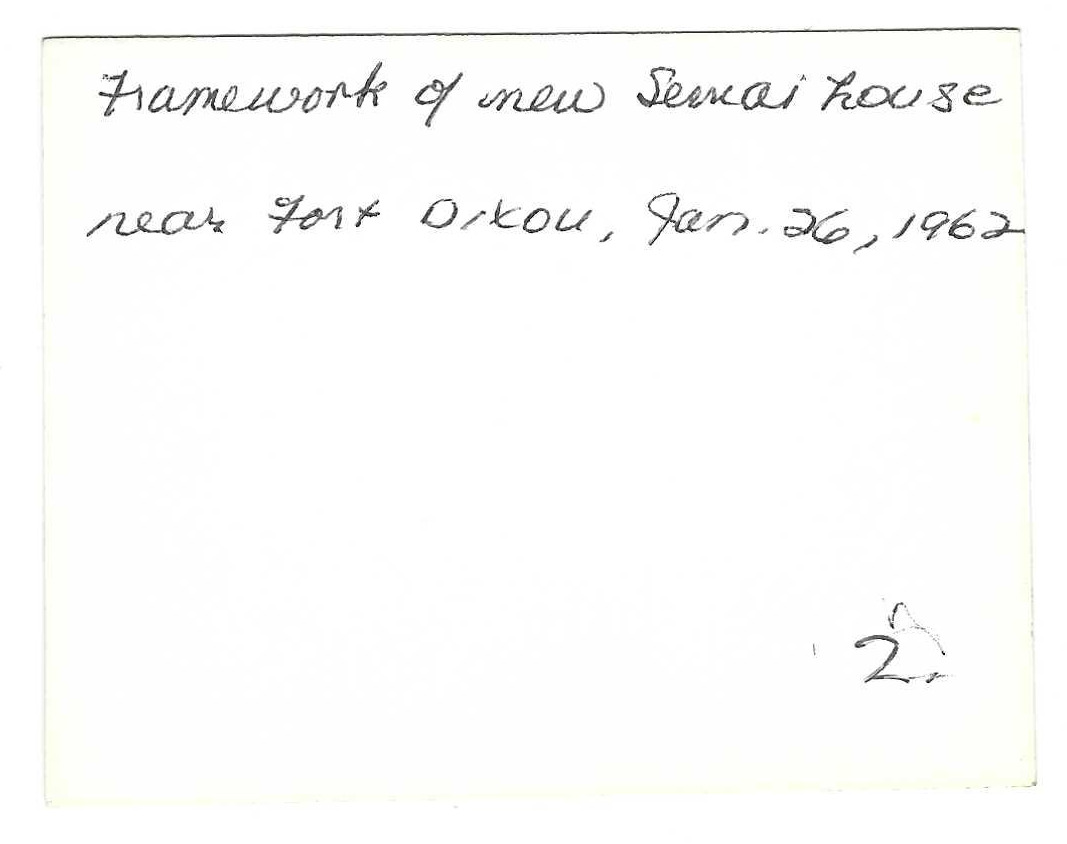 Framework of new Semai house
near Fort Dixon, Jan. 26, 1962
2.